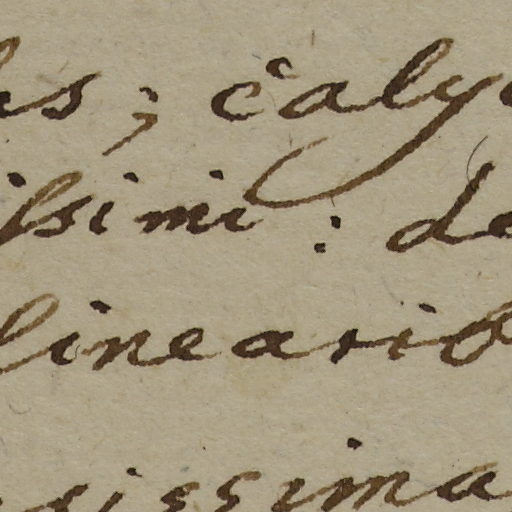 as; caly
ssimi: de
linearib
sissima